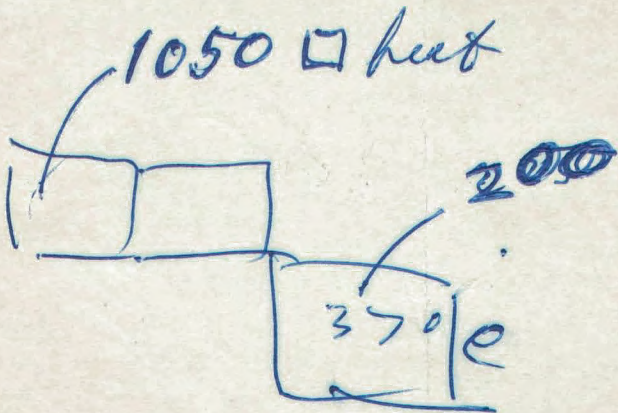 1050 □ feet
200
370
e